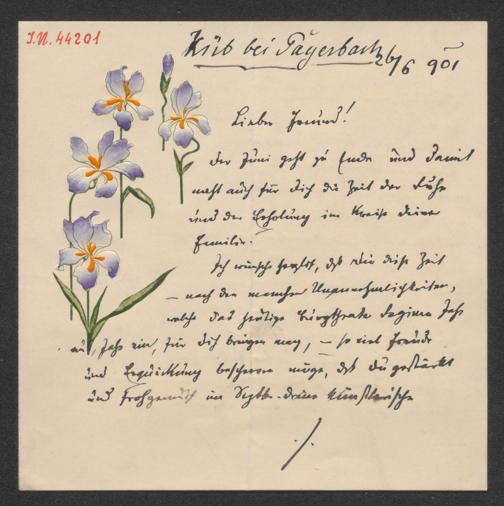 I.N. 44201
Küb bei Payerbach 26/6 901
Lieber Freund!
Der Juni geht zu Ende und damit
naht auch für Dich die Zeit der Ruhe
und der Erholung im Kreise deiner
Familie.
Ich wünsche herzlichst, dß Dir diese Zeit
– nach den manchen Unannehmlichkeiten,
welche das heutige Burgtheater Regime Jahr
aus, Jahr ein, für Dich bringen mag, – so viel Freude
und Erquickung bescheren möge, dß Du gestärkt
und frohgemuth im Septb. deine künstlerische